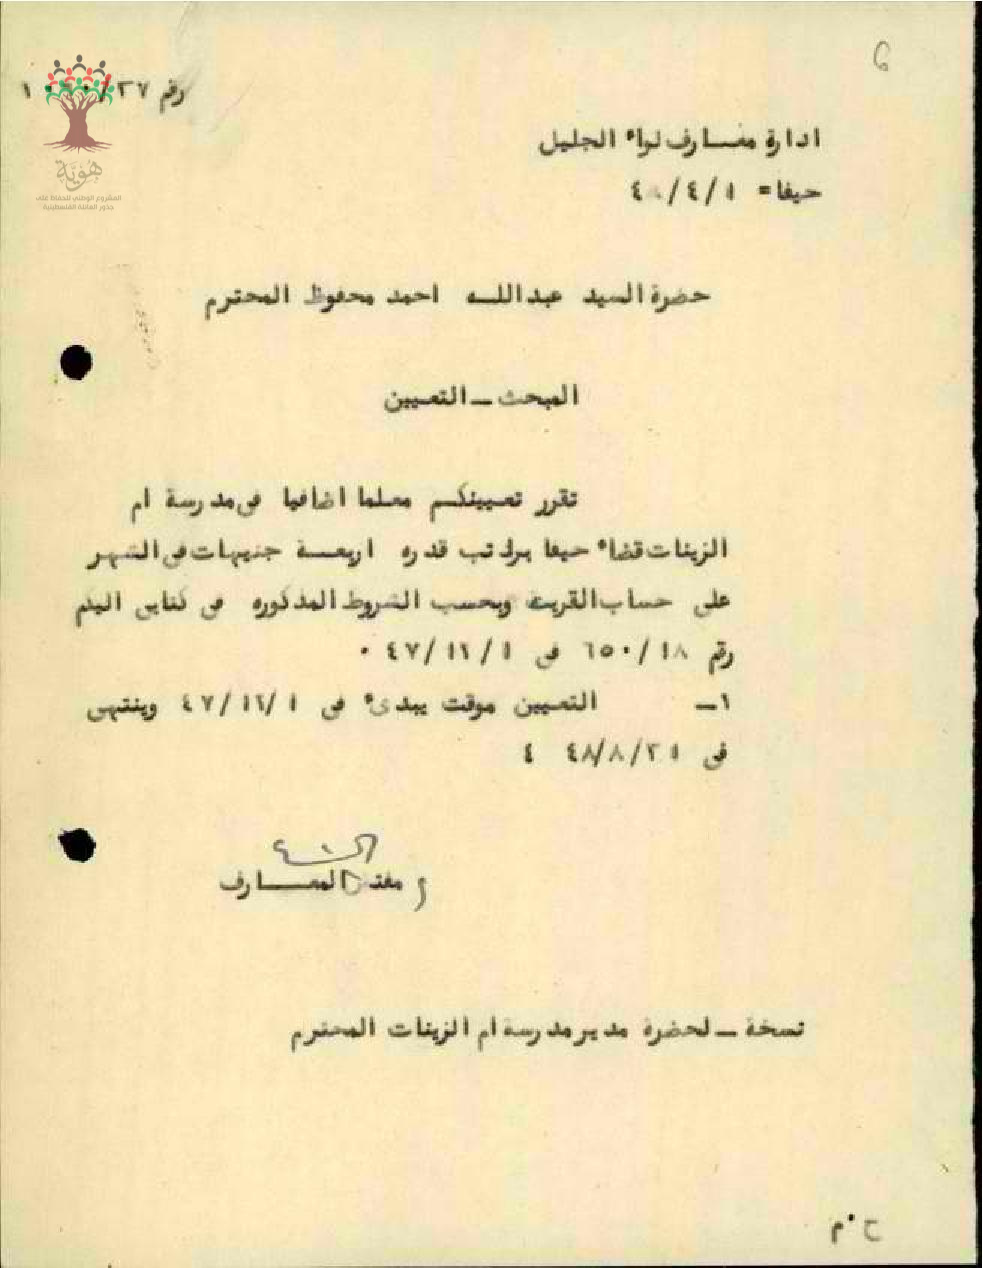 رقم ٢٧/
هوية
المشروع الوطني للحفاظ على
جذور العائلة الفلسطينية
ادارة معـارف لواء الجليل
حيفا= ١/٤/٤٨
حضرة السيد عبدالله احمد محفوظ المحترم
المبحث ـ التعيين
تقرر تعيينكم معلما اضافيا في مدرسة ام
الزينات قضاء حيفا براتب قدره اربعـة جنيهات في الشهر
على حساب القرية وبحسب الشروط المذكوره في كتابي اليكم
رقم ٦٥٠/١٨ في ١/١٢/٤٧ ٠
١ـ التعيين موقت يبدىء في ١/١٢/٤٧ وينتهي
في ٣١/٨/٤٨
مفتش المعـارف
نسخة ـ لحضرة مدير مدرسة ام الزينات المحترم
ح٠م